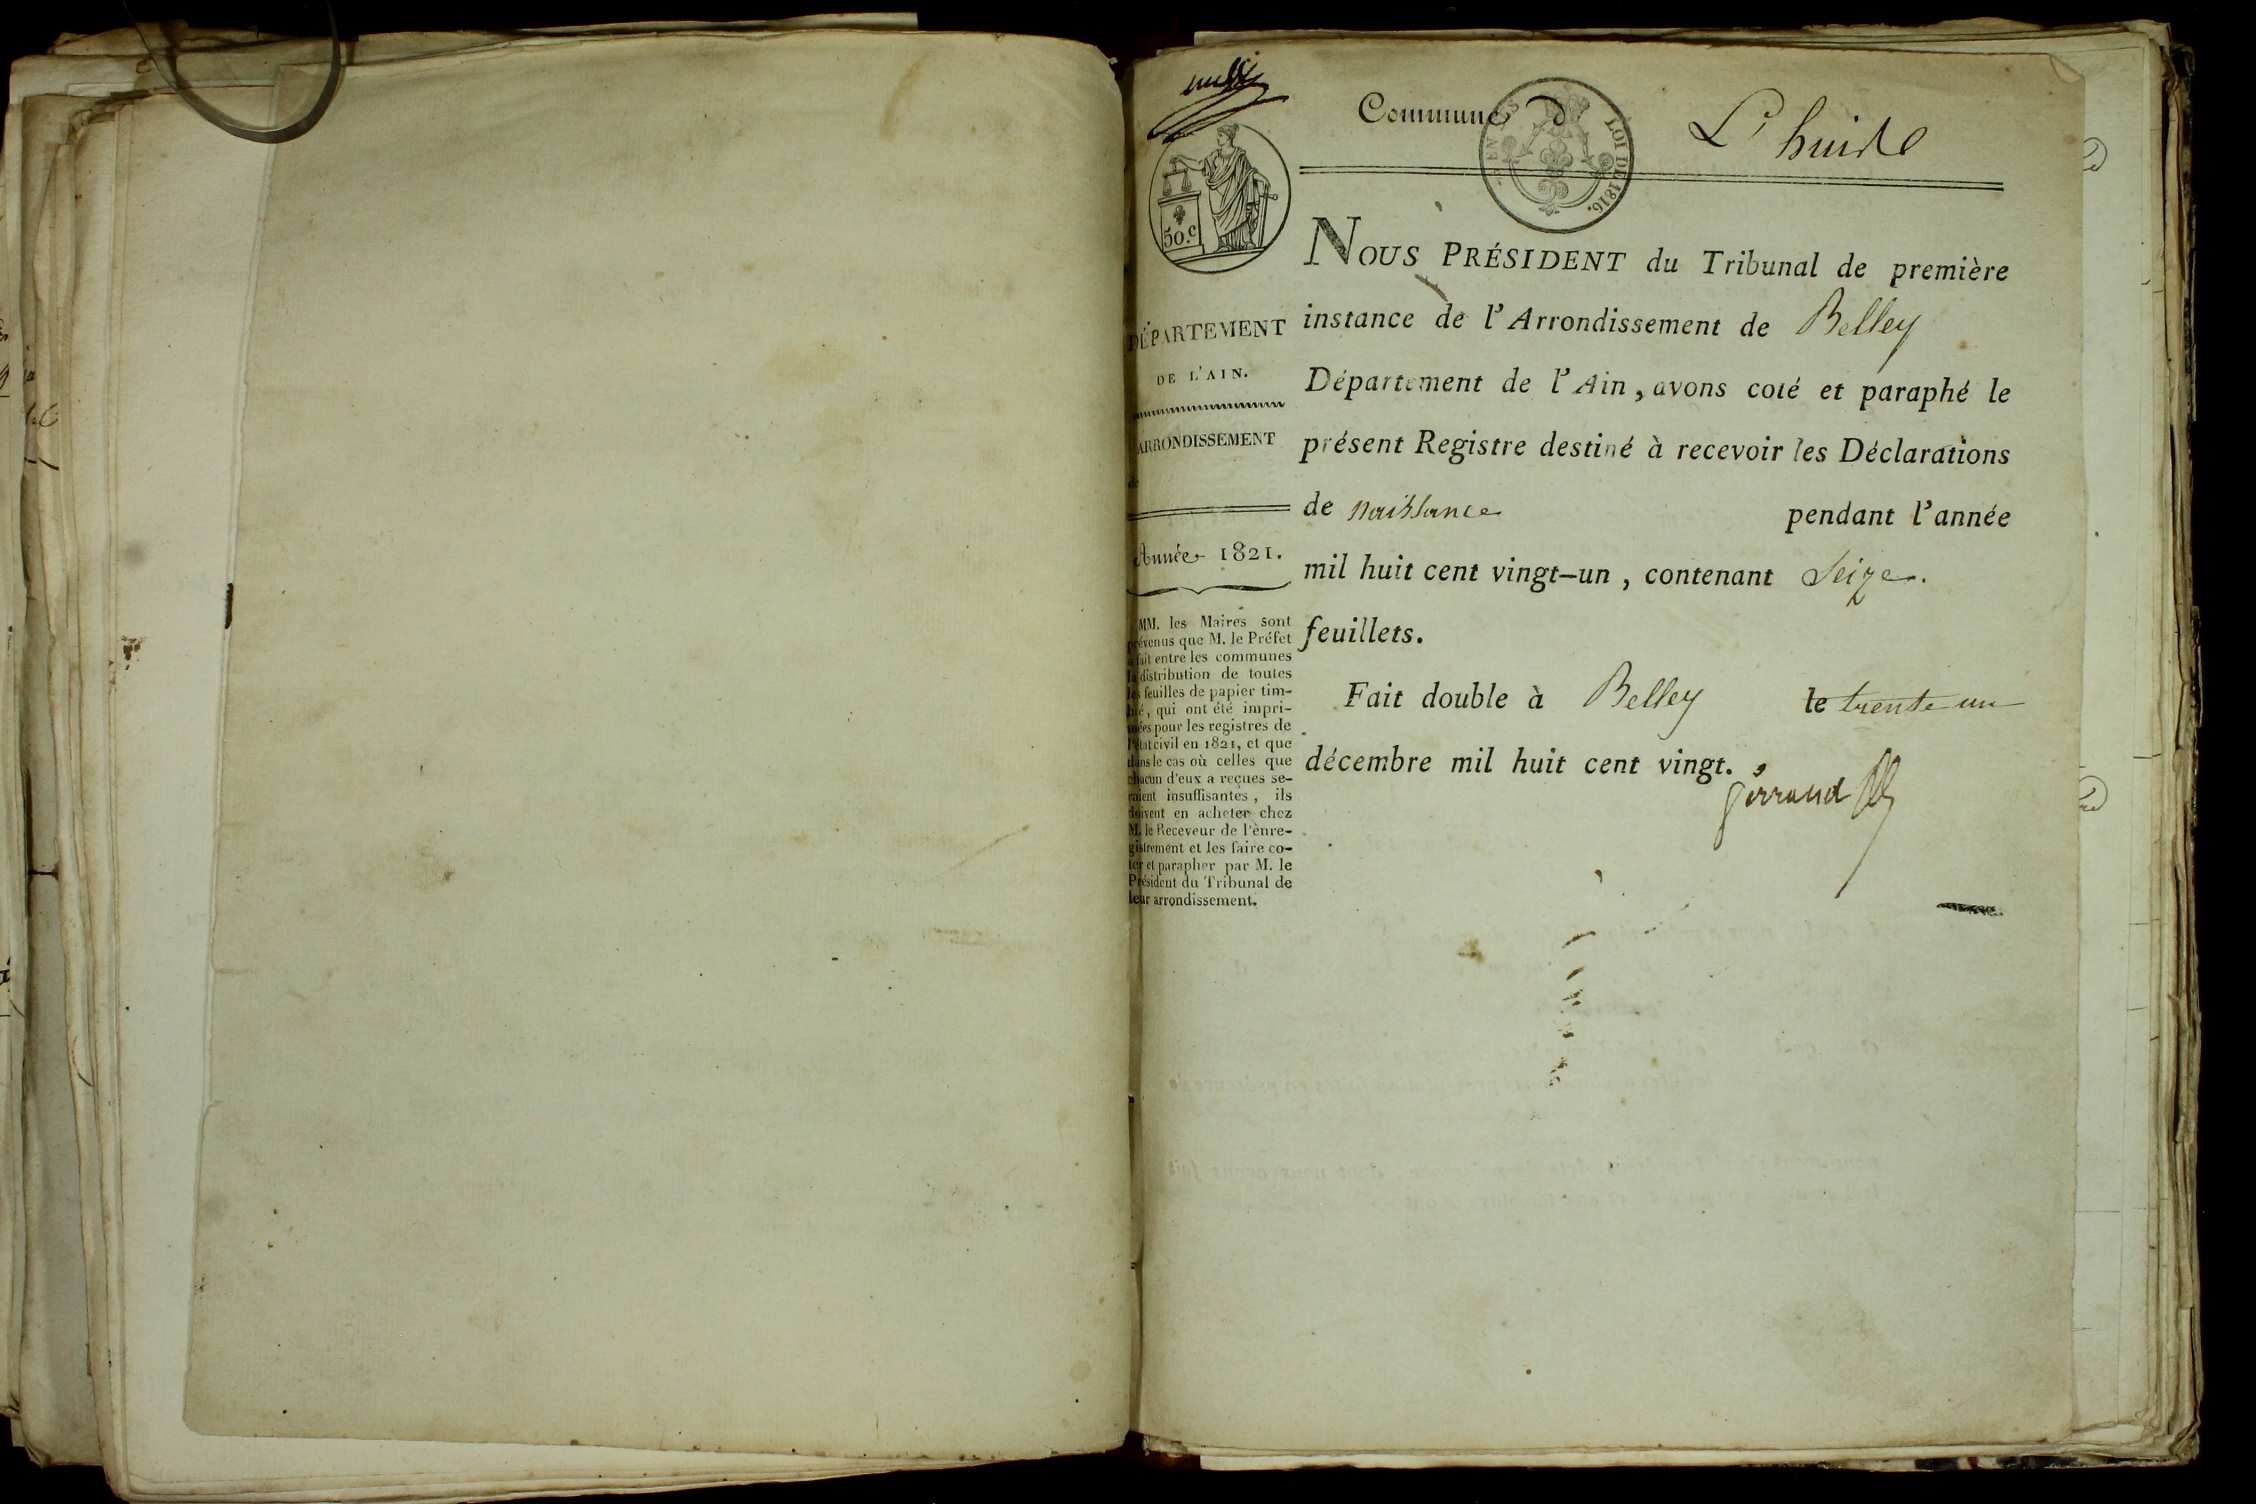 Commune d
L'huide
LOI DE 1816.
50.c
DÉPARTEMENT
DE L'AIN.
ARRONDISSEMENT
de
Année 1821.
MM. les Maires sont
prévenus que M. le Préfet
a fait entre les communes
la distribution de toutes
les feuilles de papier tim-
bré, qui ont été impri-
mées pour les registres de
l'état civil en 1821, et que
dans le cas où celles que
chacun d'eux a reçues se-
raient insuffisantes, ils
doivent en acheter chez
M. le Receveur de l'enre-
gistrement et les faire co-
ter et parapher par M. le
Président du Tribunal de
leur arrondissement.
NOUS PRÉSIDENT du Tribunal de première
instance de l'Arrondissement de Belley
Département de l'Ain, avons coté et paraphé le
présent Registre destiné à recevoir les Déclarations
de naissance pendant l'année
mil huit cent vingt-un, contenant Seize.
feuillets.
Fait double à Belley le trente un
décembre mil huit cent vingt.